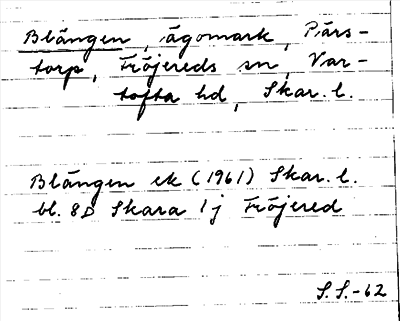 Blängen, ägomark, Pärs-
torp, Fröjereds sn, Var-
tofta hd, Skar. l.
Blängen ek (1961) Skar. l.
bl. 8D Skara 1j Fröjered
S.S.-62